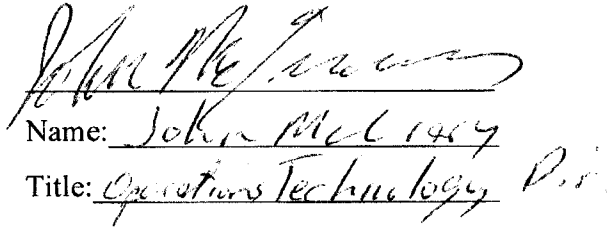 John Mc
Name: John McCrary
Title: Operations Technology Dir.